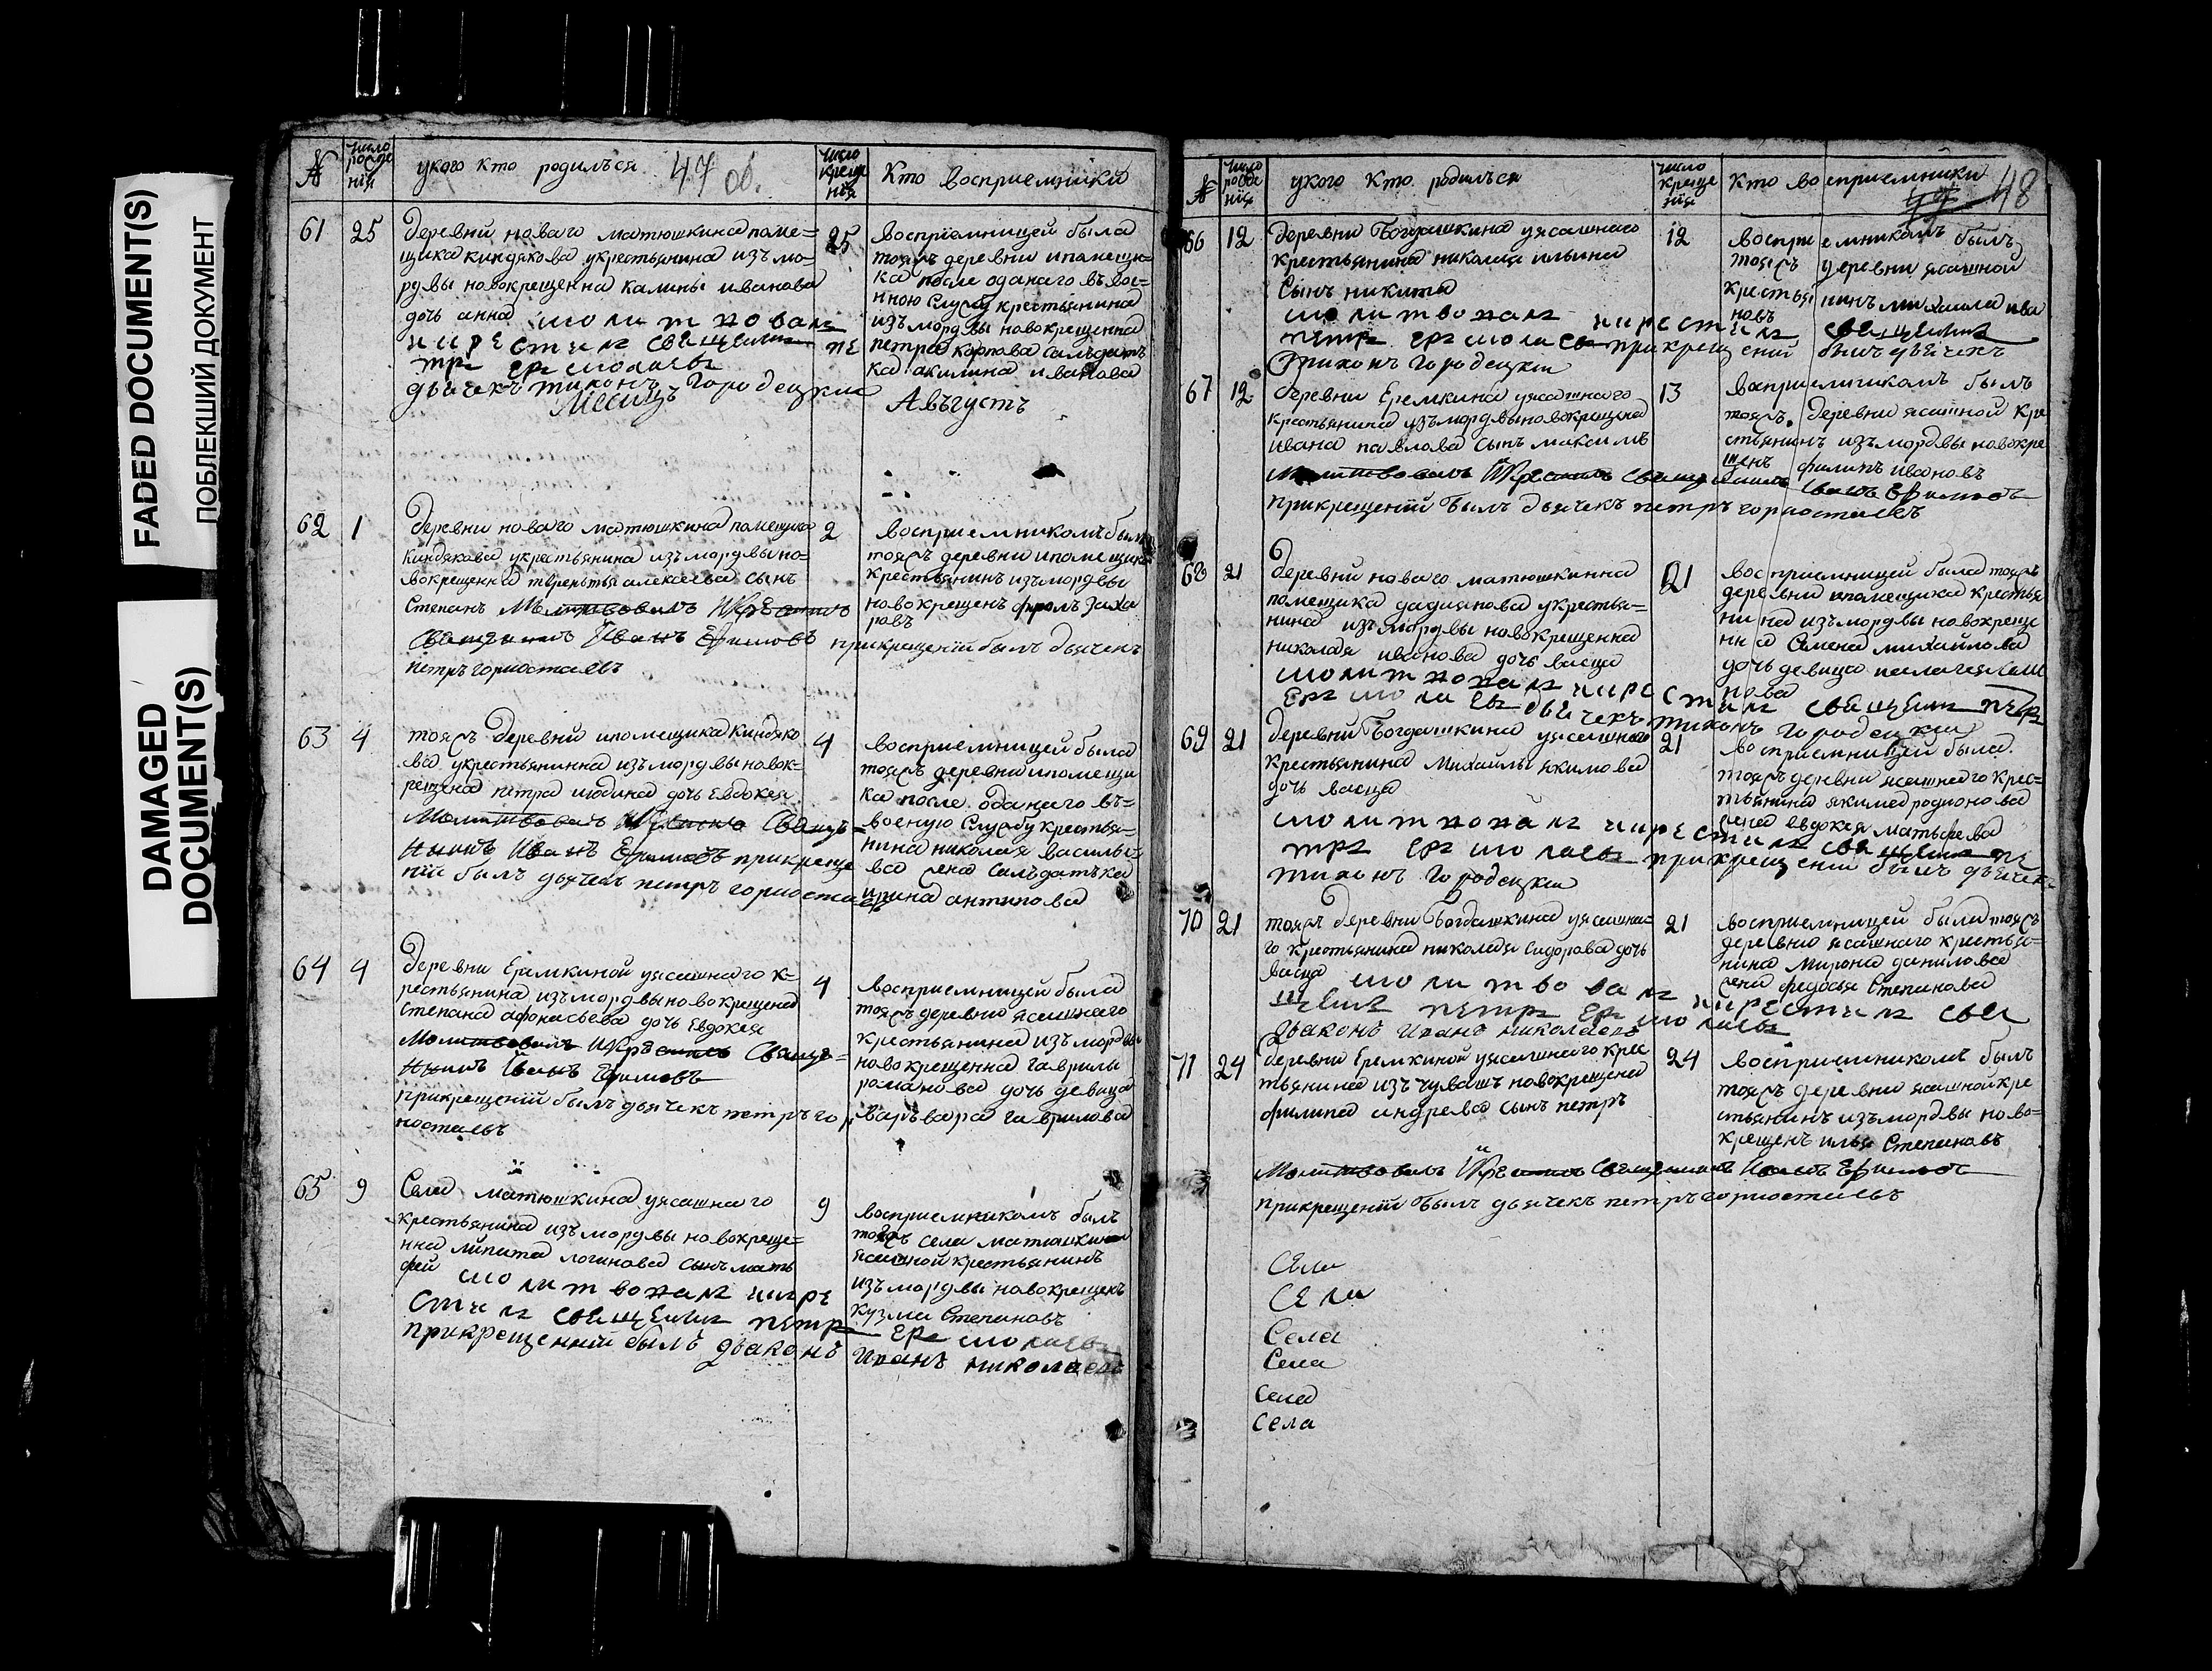 FADED DOCUMENT(S)
ПОБЛЕКШИЙ ДОКУМЕНТ
DAMAGED
DOCUMENT(S)
№ число рожде нїя укого кто родилъся 47 об. число креще нїя Кто восприемники
61 25 деревни новаго матюшкина поме=
щика киндякова укрестьянина изъ мо
рдвы новокрещенна калины иванова
дочь анна молитвовалъ
икрестилъ священикъ пе
тръ ермолаевъ
дьячекъ тихонъ городецкии
25 восприемницей была
тояжъ деревни ипомещи
ка после оданаго въ вое=
нною службу крестьянина
изъ мордвы новокрещенна
петра карпова салъдатъ
ка акилина иванова
Месяцъ Авъгустъ
62 1 деревни новаго матюшкина помещика
киндякова укрестьянина изъ мордвы но=
вокрещенна терентья алексеева сынъ
Степанъ Молитвовалъ Икрестилъ
Священикъ Иванъ Ефимовъ прикрещении былъ дьячекъ
петръ горностаевъ
2 восприемникомъ былъ
тояжъ деревни ипомещика
крестьянинъ изъ мордвы
новокрещенъ фролъ заха
ровъ
63 4 тояжъ деревни ипомещика киндяко
ва укрестьянинна изъ мордвы новок=
рещена петра июдина дочь Евдокея
Молитвовалъ Икрестилъ Священ=
никъ Иванъ Ефимовъ прикреще
нїи былъ дьячекъ петръ горностаевъ
4 восприемницей была
тояжъ деревни ипомещи
ка после оданаго въ=
военую службу крестья=
нина николая василье
ва жена Салъдатъка
ирина антипова
64 4 деревни Еремкиной уясашнаго к=
рестьянина изъ мордвы новокрещена
Степана афонасьева дочь Евдокея
Молитвовалъ Икрестилъ Свяще=
нникъ Иванъ Ефимовъ
прикрещении былъ дьячекъ петръ гор
ностаевъ
4 восприемницей была
тояжъ деревни ясашнаго
крестьянина изъ мордвы
новокрещенна гаврилы
романова дочь девица
варъвара гаврилова
65 9 Села матюшкина уясашнаго
крестьянина изъ мордвы новокреще=
нна липата логинова сынъ мать
фей молитвовалъ икре
стилъ священикъ петръ ермолаевъ
прикрещении былъ дьяконъ Иванъ николаевъ
9 восприемникомъ былъ
тогожъ села матюшкина
ясашной крестьянинъ
изъ мордвы новокрещенъ
кузма Степановъ
№ число рожде нїя укого кто родилъся число креще нїя Кто восприемники 48
66 12 деревни Богдашкина уясашнаго
крестьянина николая ильина
Сынъ никита
молитвовалъ икрестилъ священикъ
петръ ермолаевъ прикрещении былъ дьячекъ
тихонъ городецкии
12 восприемникомъ былъ
тояжъ деревни ясашной
крестьянинъ михаила ива
новъ
67 12 деревни Еремкина уясашнаго
крестьянина изъ мордвы новокрещена
ивана павлова сынъ максимъ
Молитвовалъ Икрестилъ Священикъ Иванъ Ефимовъ
прикрещении былъ дьячекъ петръ горностаевъ
13 восприемникомъ былъ
тояжъ деревни ясашной кре
стьянинъ изъ мордвы новокре
щенъ филипъ ивановъ
68 21 деревни новаго матюшкинна
помещика дадиянова укрестья=
нина изъ мордвы новокрещенна
николая иванова дочь васца
молитвовалъ икрестилъ священикъ петръ
ермолаевъ дьячекъ тихонъ городецкии
21 восприемницей была тояжъ
деревни ипомещика крестья
нина изъ мордвы новокреще
нна Семена михайлова
дочь девица пелагея Семе
нова
69 21 деревни Богдашкина уясашнаго
крестьянина Михайлы якимова
дочь васца
молитвовалъ икрестилъ священикъ пе
тръ ермолаевъ прикрещении былъ дьячекъ
тихонъ городецкии
21 восприемницей была
тояжъ деревни ясашнаго крес=
тьянина якима родионова
жена евдокея матьфева
70 21 тояжъ деревни Богдашкина уясашна=
го крестьянина николая Сидорова дочь
васца молитвовалъ икрестилъ свя
щеникъ петръ ермолаевъ
дьяконъ Иванъ николаевъ
21 восприемницей была тояжъ
деревни ясашнаго крестья=
нина Мирона данилова
жена федосья Степанова
71 24 деревни Еремкиной уясашнаго крес
тьянина изъ чувашъ новокрещена
филипа андрева сынъ петръ
24 восприемникомъ былъ
тояжъ деревни ясашной кре
стьянинъ изъ мордвы ново=
крещенъ илья Степановъ
Молитвовалъ Икрестилъ Священикъ Иванъ Ефимовъ
прикрещении былъ дьячекъ петръ горностаевъ
Села
Села
Села
Села
Села
Села